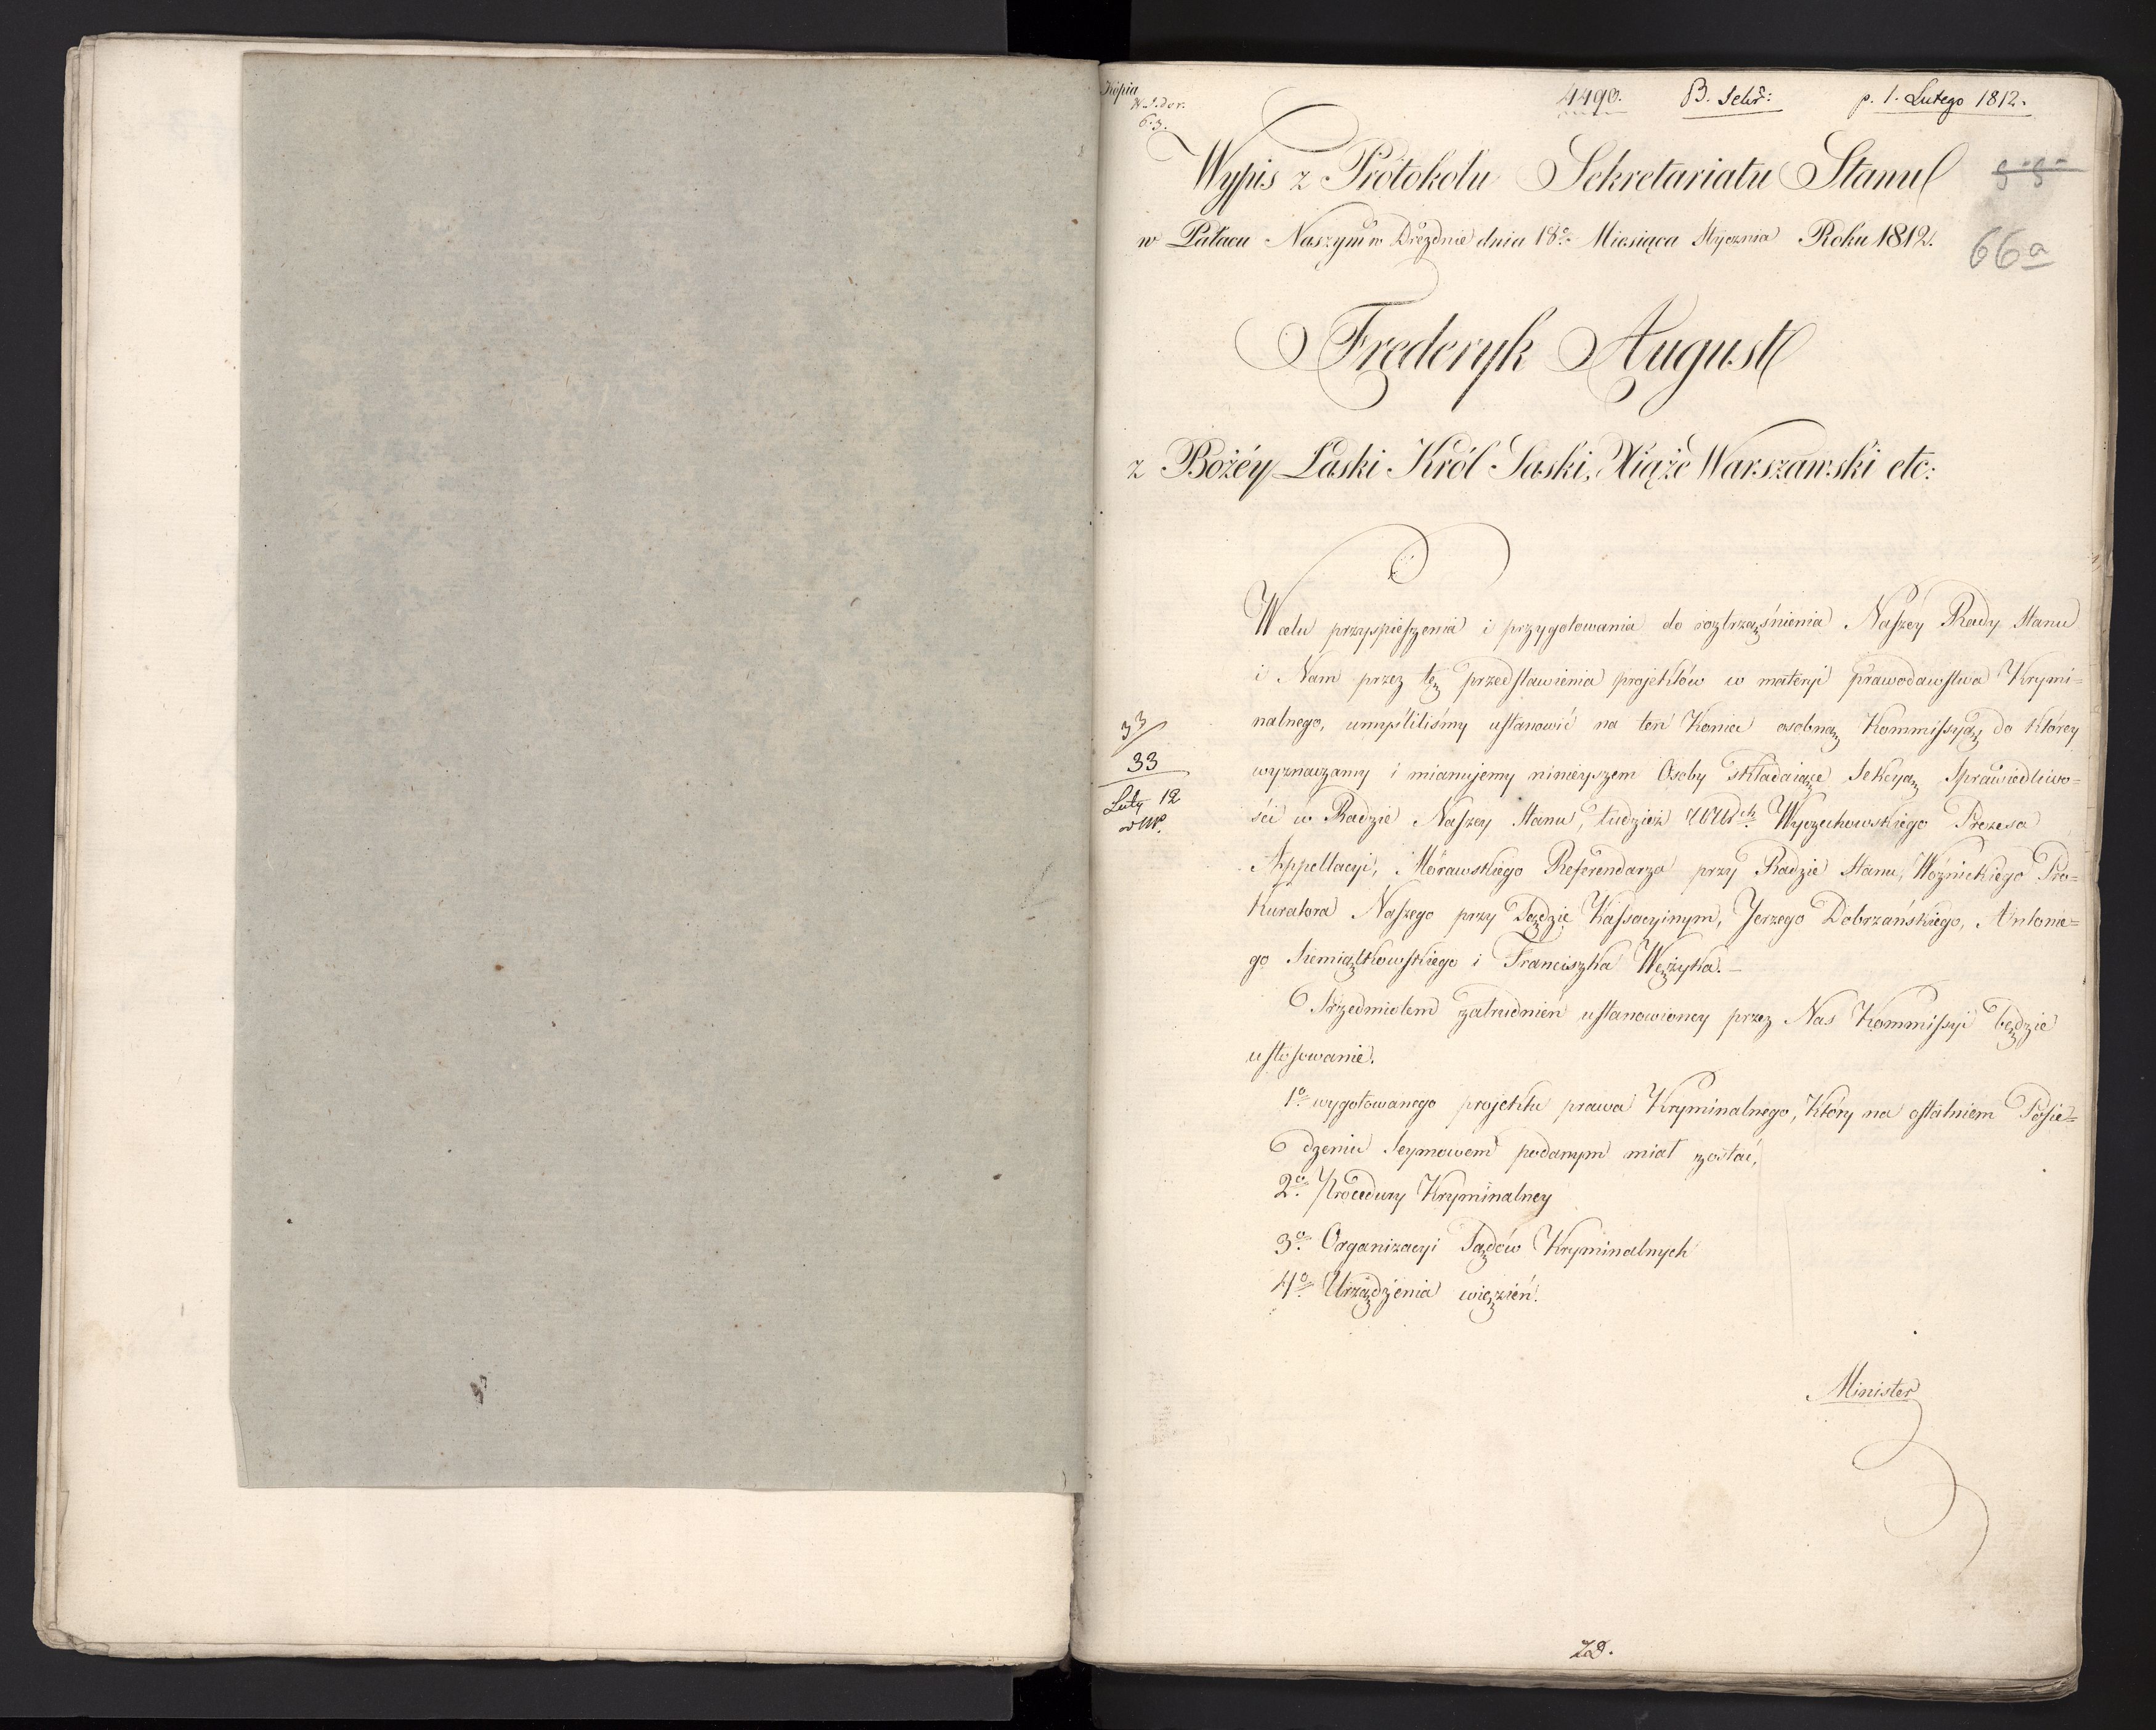 Kopia
4490. B. Sekr: p. 1. Lutego 1812.
6.3.
Wypis z Protokołu Sekretariatu Stanu
w Pałacu Naszym w Dreźdnie dnia 18º Miesiąca Stycznia Roku 1812.
66a
Frederyk August
z Bożéy Łaski Król Saski, Xiąże Warszawski etc:
W celu przyspieszenia i przygotowania do roztrząśnienia Naszey Rady Stanu
i Nam przez tę przedstawienia projektów w materyi prawodawstwa Krymi=
nalnego, umyśliliśmy ustanowić na ten Koniec osobną Kommissyą do Którey
wyznaczamy i mianujemy ninieyszem Osoby składaiące Sekcyą Sprawiedliwo=
ści w Radzie Naszey Stanu, tudzież UUrych Wyczechowskiego Prezesa
Appellacyi, Morawskiego Referendarza przy Radzie Stanu, Woźnickiego Pro=
kuratora Naszego przy Sądzie Kassacyinym, Jerzego Dobrzańskiego, Antonie=
go Siemiątkowskiego i Franciszka Wężyka. –
Przedmiotem zatrudnień ustanowioney przez Nas Kommissyi będzie
ustosowanie.
1º wygotowanego projektu prawa Kryminalnego, Który na ostatniem Posie=
dzeniu Seymowem podanym miał zostać,
2º Procedury Kryminalney
3º Organizacyi Sądów Kryminalnych
4º Urządzenia więzień.
Minister
33
33
Luty 12